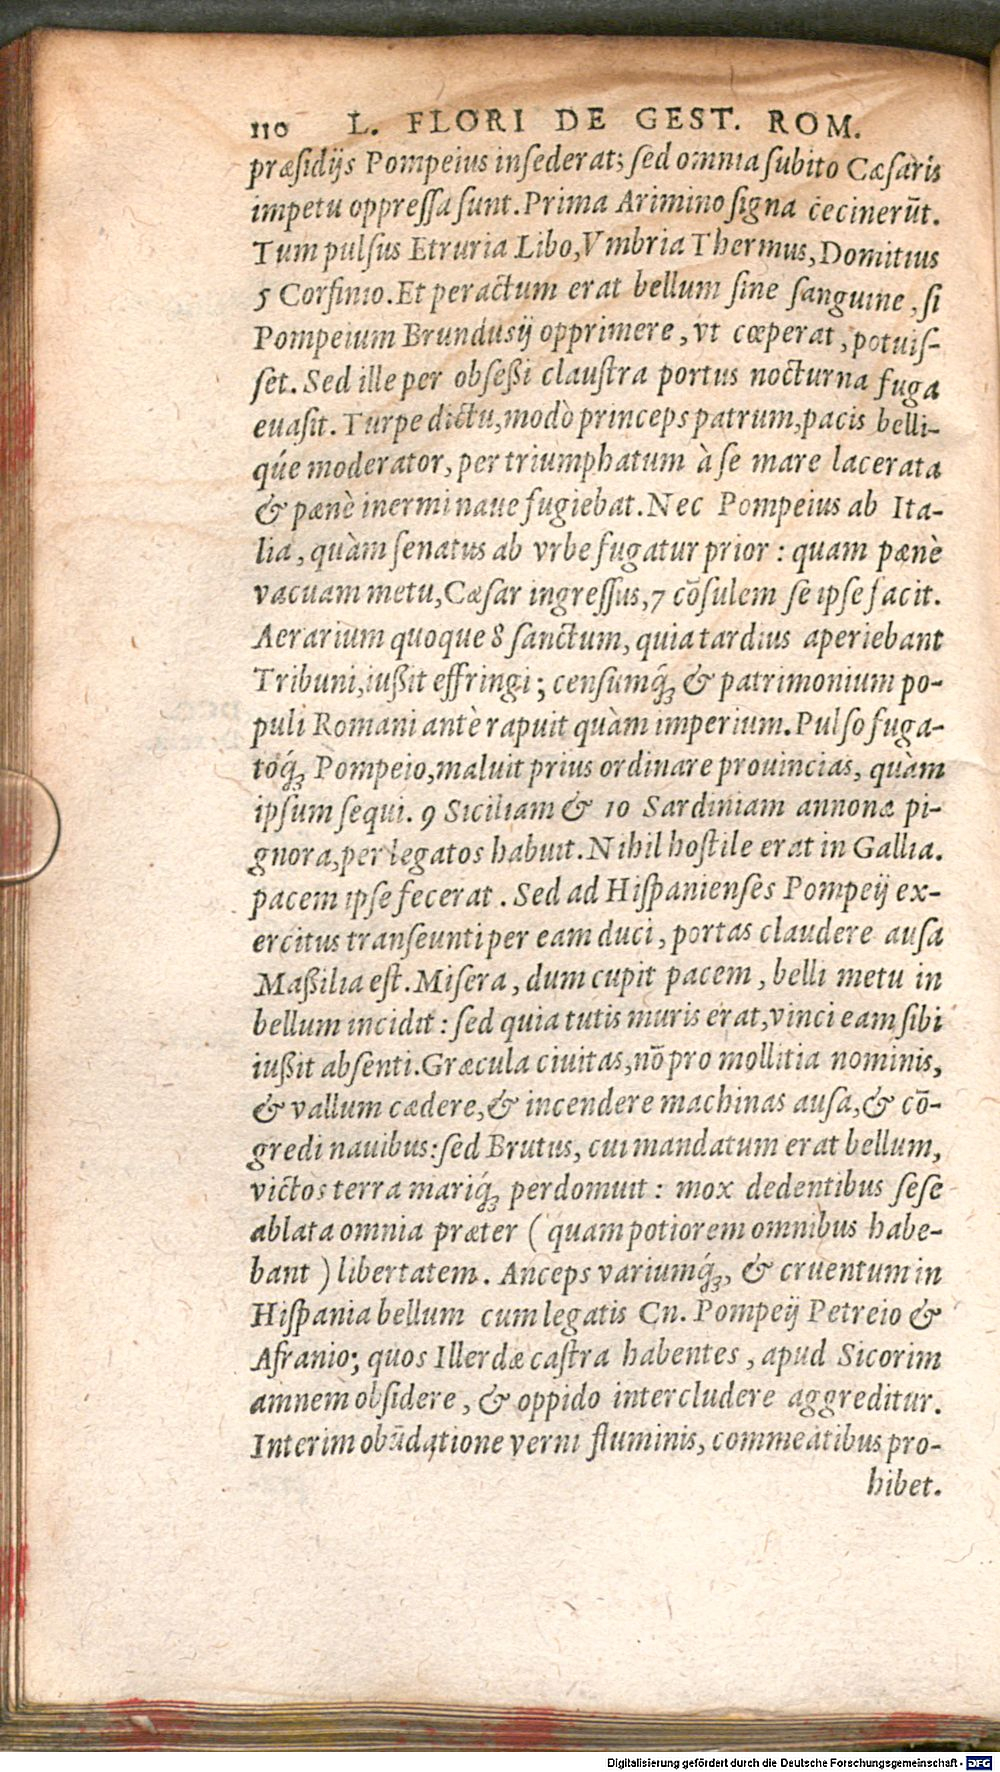 110 L. FLORI DE GEST. ROM.
præsidijs Pompeius insederat; sed omnia subito Cæsaris
impetu oppressa sunt. Prima Arimino signa cecinerūt.
Tum pulsus Etruria Libo, Vmbria Thermus, Domitius
5 Corfinio. Et peractum erat bellum sine sanguine, si
Pompeium Brundusij opprimere, vt cœperat, potuis-
set. Sed ille per obseßi claustra portus nocturna fuga
euasit. Turpe dictu, modò princeps patrum, pacis belli-
qúe moderator, per triumphatum à se mare lacerata
& pænè inermi naue fugiebat. Nec Pompeius ab Ita-
lia, quàm senatus ab vrbe fugatur prior : quam pænè
vacuam metu, Cæsar ingressus, 7 cōsulem se ipse facit.
Aerarium quoque 8 sanctum, quia tardius aperiebant
Tribuni, iußit effringi; censumq́ꝫ & patrimonium po-
puli Romani antè rapuit quàm imperium. Pulso fuga-
toq́ꝫ Pompeio, maluit prius ordinare prouincias, quàm
ipsum sequi. 9 Siciliam & 10 Sardiniam annonæ pi-
gnora, per legatos habuit. Nihil hostile erat in Gallia.
pacem ipse fecerat. Sed ad Hispanienses Pompeij ex-
ercitus transeunti per eam duci, portas claudere ausa
Maßilia est. Misera, dum cupit pacem, belli metu in
bellum incidit : sed quia tutis muris erat, vinci eam sibi
iußit absenti. Græcula ciuitas, nō pro mollitia nominis,
& vallum cædere, & incendere machinas ausa, & cō-
gredi nauibus: sed Brutus, cui mandatum erat bellum,
victos terra mariq́ꝫ perdomuit : mox dedentibus sese
ablata omnia præter ( quam potiorem omnibus habe-
bant ) libertatem. Anceps variumq́ꝫ, & cruentum in
Hispania bellum cum legatis Cn. Pompeij Petreio &
Afranio; quos Illerdæ castra habentes, apud Sicorim
amnem obsidere, & oppido intercludere aggreditur.
Interim obūdatione verni fluminis, commeatibus pro-
hibet.
Digitalisierung gefördert durch die Deutsche Forschungsgemeinschaft - DFG